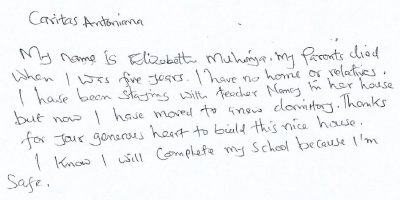 Caritas Antoniana
My name is Elizabeth Muhinja. My parents died
when I was five years. I have no home or relatives.
I have been staying with teacher Nancy in her house
but now I have moved to a new dormitory. Thanks
for your generous heart to build this nice house.
I know I will complete my school because I'm
safe.